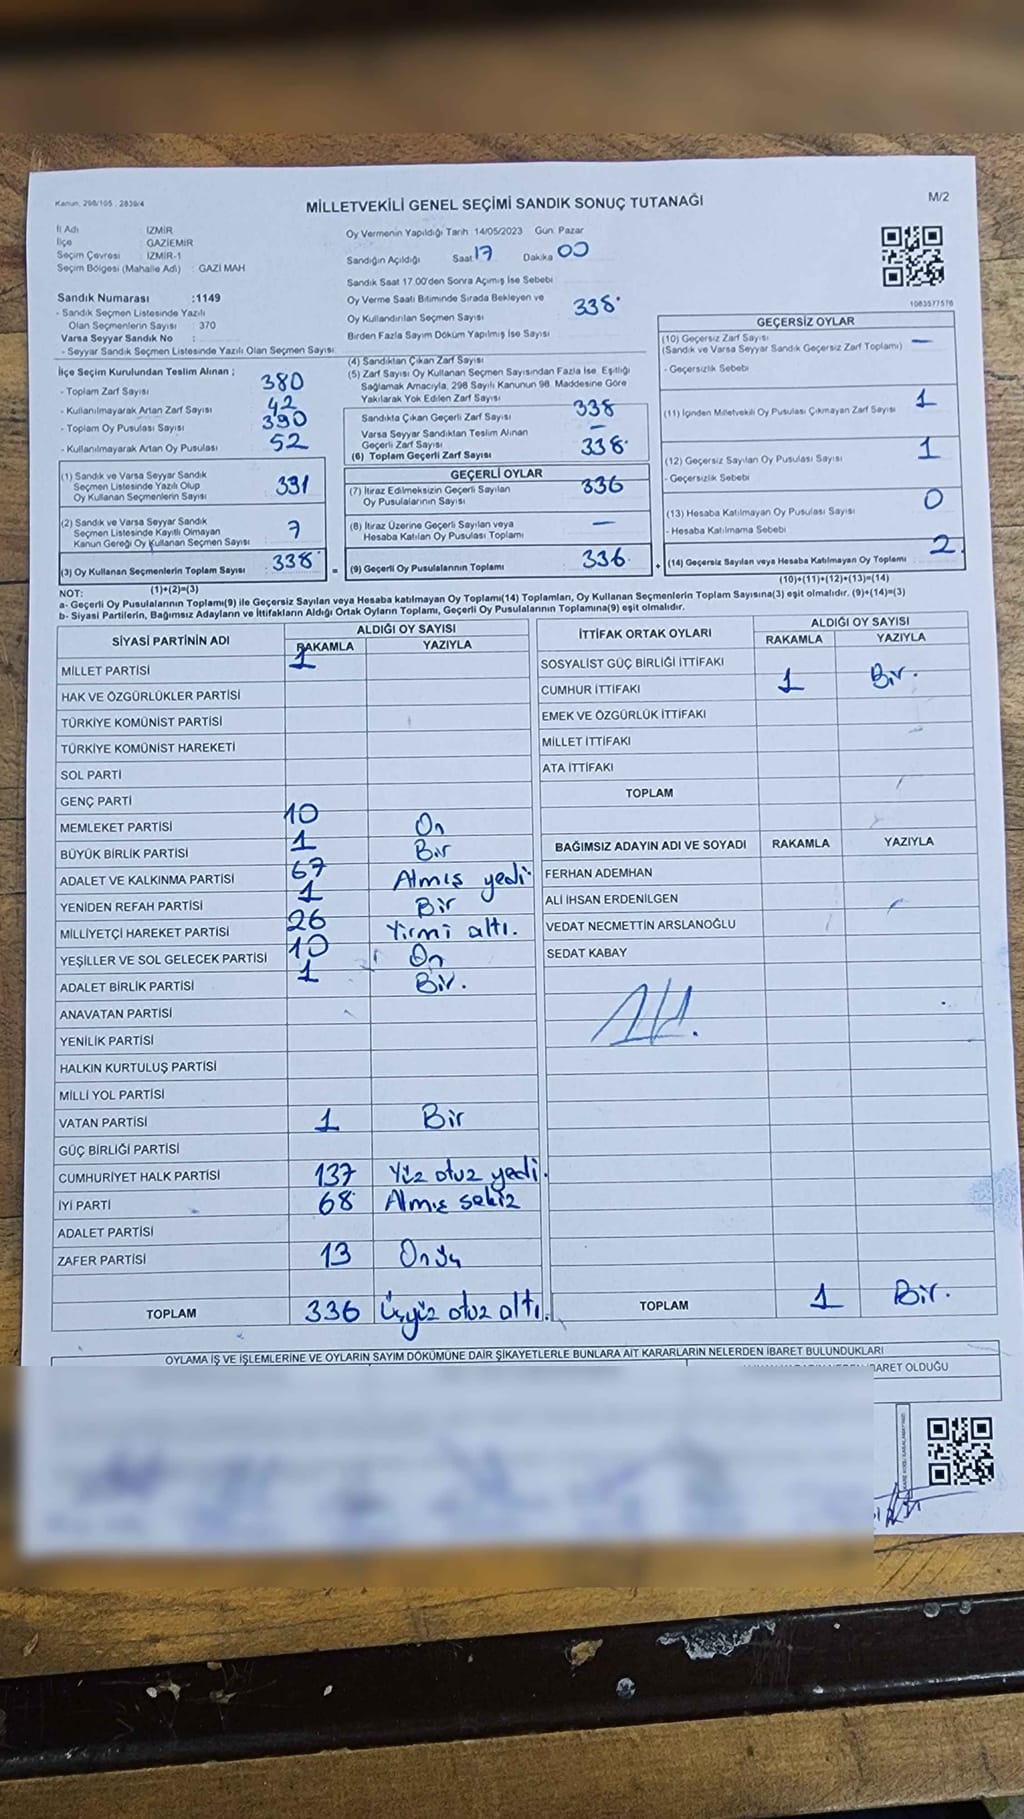 Kanun, 298/105, 2839/4
MİLLETVEKİLİ GENEL SEÇİMİ SANDIK SONUÇ TUTANAĞI
M/2
İl Adı İZMİR
İlçe GAZİEMİR
Seçim Çevresi İZMİR-1
Seçim Bölgesi (Mahalle Adı) : GAZİ MAH
Sandık Numarası :1149
- Sandık Seçmen Listesinde Yazılı
Olan Seçmenlerin Sayısı : 370
Varsa Seyyar Sandık No :
- Seyyar Sandık Seçmen Listesinde Yazılı Olan Seçmen Sayısı:
Oy Vermenin Yapıldığı Tarih :14/05/2023 Gün: Pazar
Sandığın Açıldığı Saat 17 Dakika 00
Sandık Saat 17.00'den Sonra Açımış İse Sebebi
Oy Verme Saati Bitiminde Sırada Bekleyen ve
Oy Kullandırılan Seçmen Sayısı 338
Birden Fazla Sayım Döküm Yapılmış İse Sayısı
1083577576
İlçe Seçim Kurulundan Teslim Alınan ;
- Toplam Zarf Sayısı 380
- Kullanılmayarak Artan Zarf Sayısı 42
- Toplam Oy Pusulası Sayısı 390
- Kullanılmayarak Artan Oy Pusulası 52
(1) Sandık ve Varsa Seyyar Sandık
Seçmen Listesinde Yazılı Olup
Oy Kullanan Seçmenlerin Sayısı 331
(2) Sandık ve Varsa Seyyar Sandık
Seçmen Listesinde Kayıtlı Olmayan
Kanun Gereği Oy Kullanan Seçmen Sayısı 7
(3) Oy Kullanan Seçmenlerin Toplam Sayısı 338
(1)+(2)=(3)
(4) Sandıktan Çıkan Zarf Sayısı
(5) Zarf Sayısı Oy Kullanan Seçmen Sayısından Fazla İse, Eşitliği
Sağlamak Amacıyla, 298 Sayılı Kanunun 98. Maddesine Göre
Yakılarak Yok Edilen Zarf Sayısı
Sandıkta Çıkan Geçerli Zarf Sayısı 338
Varsa Seyyar Sandıktan Teslim Alınan
Geçerli Zarf Sayısı –
(6) Toplam Geçerli Zarf Sayısı 338
GEÇERLİ OYLAR
(7) İtiraz Edilmeksizin Geçerli Sayılan
Oy Pusulalarının Sayısı 336
(8) İtiraz Üzerine Geçerli Sayılan veya
Hesaba Katılan Oy Pusulası Toplamı —
= (9) Geçerli Oy Pusulalarının Toplamı 336
GEÇERSİZ OYLAR
(10) Geçersiz Zarf Sayısı
(Sandık ve Varsa Seyyar Sandık Geçersiz Zarf Toplamı) —
- Geçersizlik Sebebi
(11) İçinden Milletvekili Oy Pusulası Çıkmayan Zarf Sayısı 1
(12) Geçersiz Sayılan Oy Pusulası Sayısı 1
- Geçersizlik Sebebi
(13) Hesaba Katılmayan Oy Pusulası Sayısı 0
- Hesaba Katılmama Sebebi
+ (14) Geçersiz Sayılan veya Hesaba Katılmayan Oy Toplamı 2
(10)+(11)+(12)+(13)=(14)
NOT:
a- Geçerli Oy Pusulalarının Toplamı(9) ile Geçersiz Sayılan veya Hesaba katılmayan Oy Toplamı(14) Toplamları, Oy Kullanan Seçmenlerin Toplam Sayısına(3) eşit olmalıdır. (9)+(14)=(3)
b- Siyasi Partilerin, Bağımsız Adayların ve İttifakların Aldığı Ortak Oyların Toplamı, Geçerli Oy Pusulalarının Toplamına(9) eşit olmalıdır.
SİYASİ PARTİNİN ADI
ALDIĞI OY SAYISI
RAKAMLA YAZIYLA
MİLLET PARTİSİ 1
HAK VE ÖZGÜRLÜKLER PARTİSİ
TÜRKİYE KOMÜNİST PARTİSİ
TÜRKİYE KOMÜNİST HAREKETİ
SOL PARTİ
GENÇ PARTİ
MEMLEKET PARTİSİ 10 On
BÜYÜK BİRLİK PARTİSİ 1 Bir
ADALET VE KALKINMA PARTİSİ 67 Almış yedi
YENİDEN REFAH PARTİSİ 1 Bir
MİLLİYETÇİ HAREKET PARTİSİ 26 Yirmi altı.
YEŞİLLER VE SOL GELECEK PARTİSİ 10 On
ADALET BİRLİK PARTİSİ 1 Bir.
ANAVATAN PARTİSİ
YENİLİK PARTİSİ
HALKIN KURTULUŞ PARTİSİ
MİLLİ YOL PARTİSİ
VATAN PARTİSİ 1 Bir
GÜÇ BİRLİĞİ PARTİSİ
CUMHURİYET HALK PARTİSİ 137 Yüz otuz yedi.
İYİ PARTİ 68 Almış sekiz
ADALET PARTİSİ
ZAFER PARTİSİ 13 Onüç
TOPLAM 336 Üçyüz otuz altı.
İTTİFAK ORTAK OYLARI
ALDIĞI OY SAYISI
RAKAMLA YAZIYLA
SOSYALİST GÜÇ BİRLİĞİ İTTİFAKI
CUMHUR İTTİFAKI 1 Bir.
EMEK VE ÖZGÜRLÜK İTTİFAKI
MİLLET İTTİFAKI
ATA İTTİFAKI
TOPLAM
BAĞIMSIZ ADAYIN ADI VE SOYADI RAKAMLA YAZIYLA
FERHAN ADEMHAN
ALİ İHSAN ERDENİLGEN
VEDAT NECMETTİN ARSLANOĞLU
SEDAT KABAY
TOPLAM 1 Bir.
OYLAMA İŞ VE İŞLEMLERİNE VE OYLARIN SAYIM DÖKÜMÜNE DAİR ŞİKAYETLERLE BUNLARA AİT KARARLARIN NELERDEN İBARET BULUNDUKLARI
BARET OLDUĞU